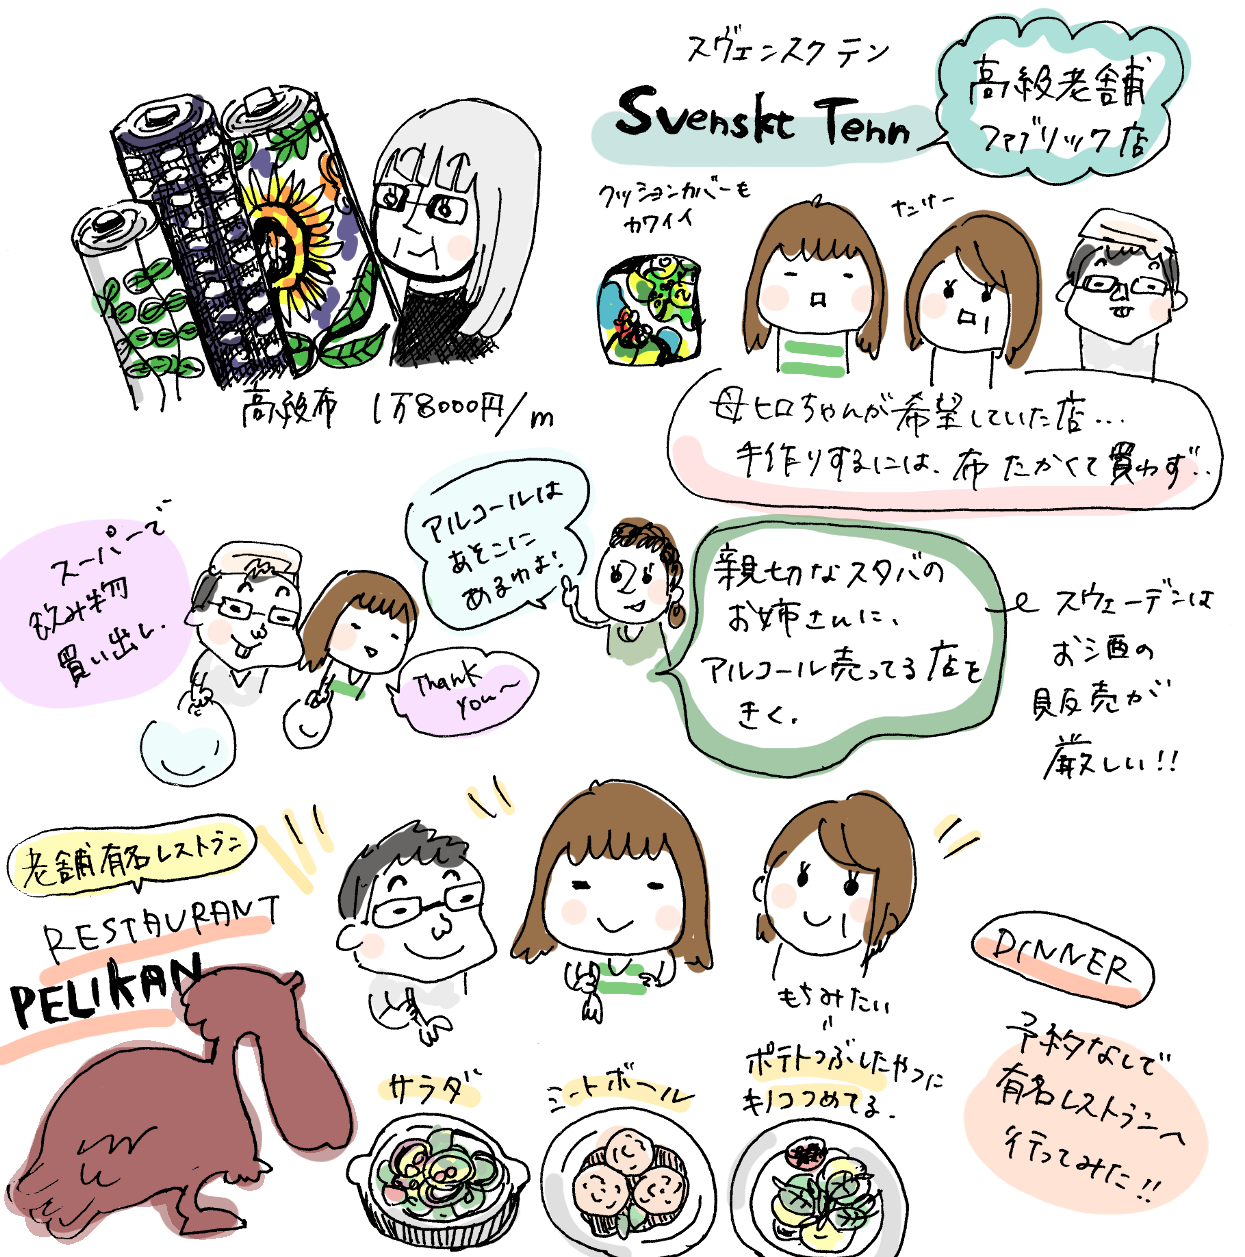 スヴェンスクテン
Svenskt Tenn
高級老舗
ファブリック店
クッションカバーも
カワイイ
高級布 1万8000円/m
母ヒロちゃんが希望していた店…
手作りするには、布たかくて買わず‥
スーパーで
飲み物
買い出し.
アルコールは
あそこに
あるわよ!
Thank
you〜
親切なスタバの
お姉さんに、
アルコール売ってる店を
きく.
スウェーデンは
お酒の
販売が
厳しい!!
老舗有名レストラン
RESTAURANT
PELIKAN
DINNER
予約なしで
有名レストランへ
行ってみた!!
サラダ
ミートボール
もちみたい
ポテトつぶしたやつに
キノコつめてる.